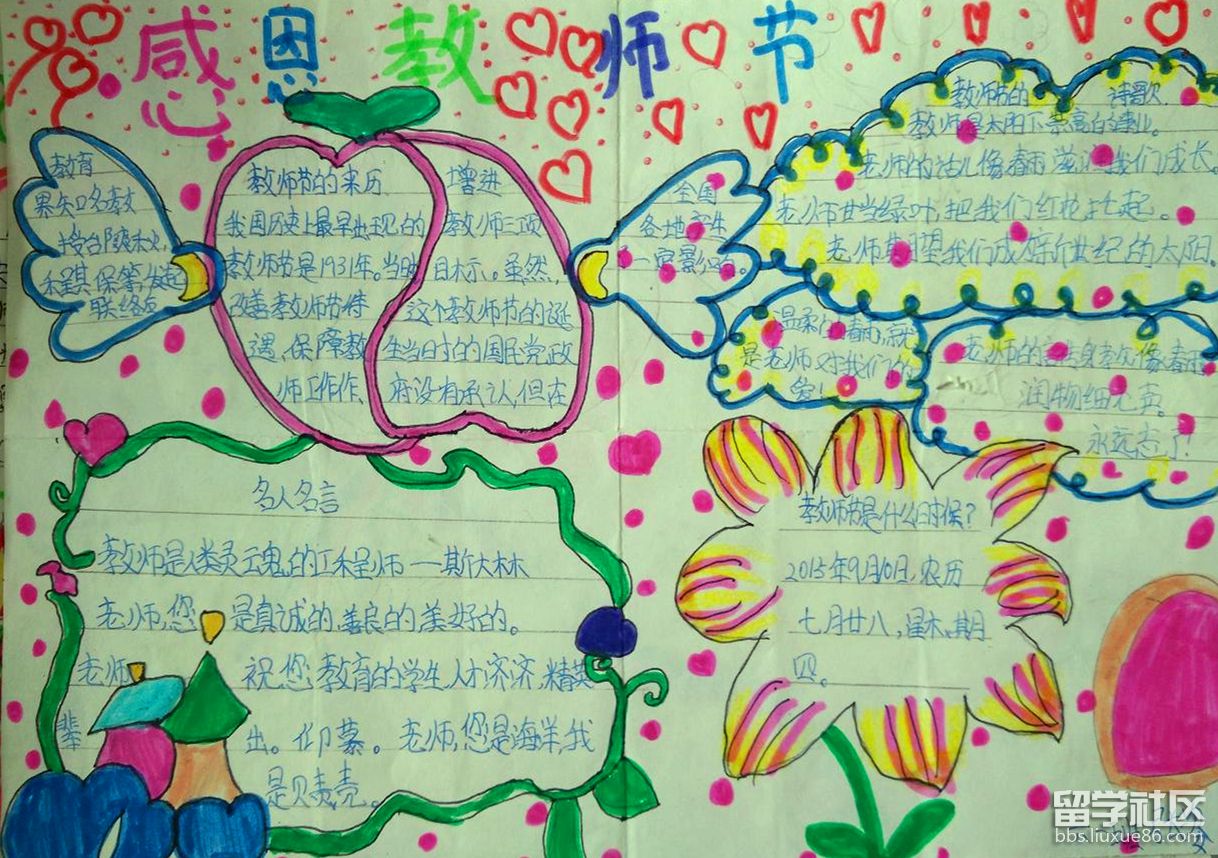 感恩教师节
教育
界知名教
授邰爽秋、
程其保等发起
联络京
教师节的来历
我国历史上最早出现的
教师节是1931年。当时
改善教师节待
遇,保障教
师工作作
增进
教师三项
目标示。虽然,
这个教师节的诞
生当时的国民党政
府没有承认,但在
全国
各地产生
一定影响。
教师节的 诗歌
教师是太阳下崇高的事业。
老师的话儿像春雨滋润我们成长。
老师甘当绿叶,把我们红花托起。
老师期望我们成序新世纪的太阳。
温柔的春雨,就
是老师对我们的
爱!
老师的言传身教像春雨
润物细无声。
永远忘了!
名人名言
教师是人类灵魂的工程师 ——斯大林
老师,您 是真诚的,善良的,美好的。
老师 祝您,教育的学生,人才济济,精英
辈 出。仰慕。老师,您是海洋,我
是贝壳。
教师节是什么时候?
2015年9月10日,农历
七月廿八,星期
四。
留学社区
bbs.liuxue86.com